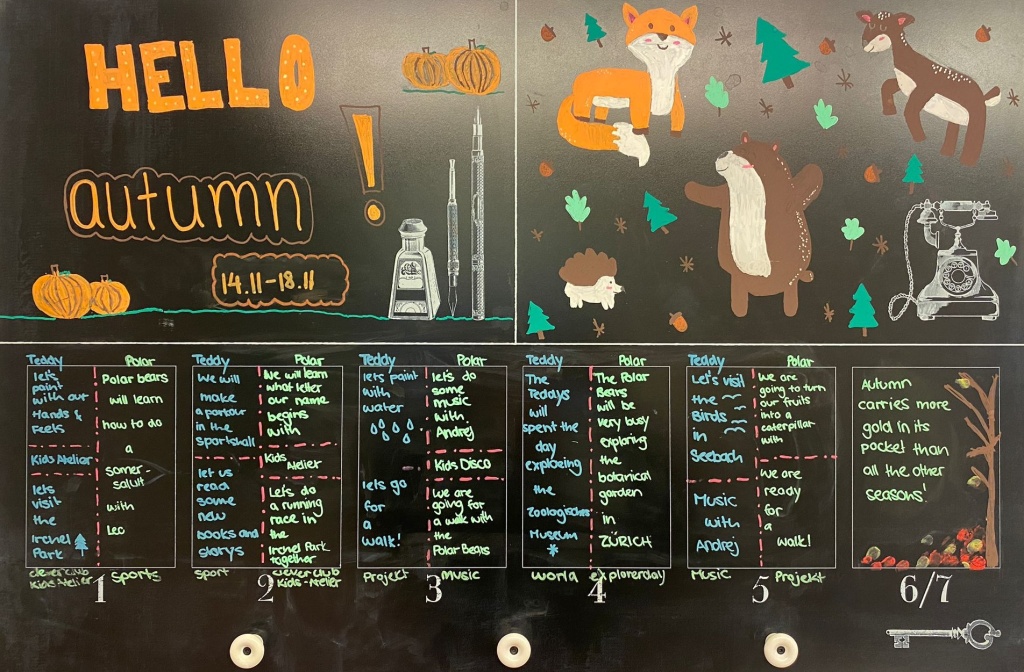 HELLO
autumn
!
14.11-18.11
Teddy
let's
paint
with our
Hands &
Feets
Kids Atelier
lets
visit
the
Irchel
Park
clever club
Kids Atelier
Polar
Polar bears
will learn
how to do
a
somer-
salult
with
Leo
Sports
1
Teddy
We will
make
a parkour
in the
sportshall
let us
read
some
new
books and
storys
sport
Polar
We will learn
what letter
our name
begins
with
Kids
Atelier
Lets do
a running
race in
the
Irchel Park
together
clever club
Kids-Atelier
2
Teddy
lets paint
with
water
lets go
for
a
walk!
Projekt
Polar
lets do
some
music
with
Andrej
Kids Disco
We are
going for
a walk with
the
Polar Bears
Music
3
Teddy
The
Teddys
will
spent the
day
exploeing
the
Zoologisches
Museum
Polar
The Polar
Bears
will be
very busy
exploring
the
botanical
garden
in
ZÜRICH
world explorerday
4
Teddy
Let's visit
the
Birds
in
Seebach
Music
with
Andrej
Music
Polar
we are
going to turn
our fruits
into a
caterpillar
with
we are
ready
for
a
walk!
Projekt
5
Autumn
carries more
gold in its
pocket than
all the other
seasons!
6/7